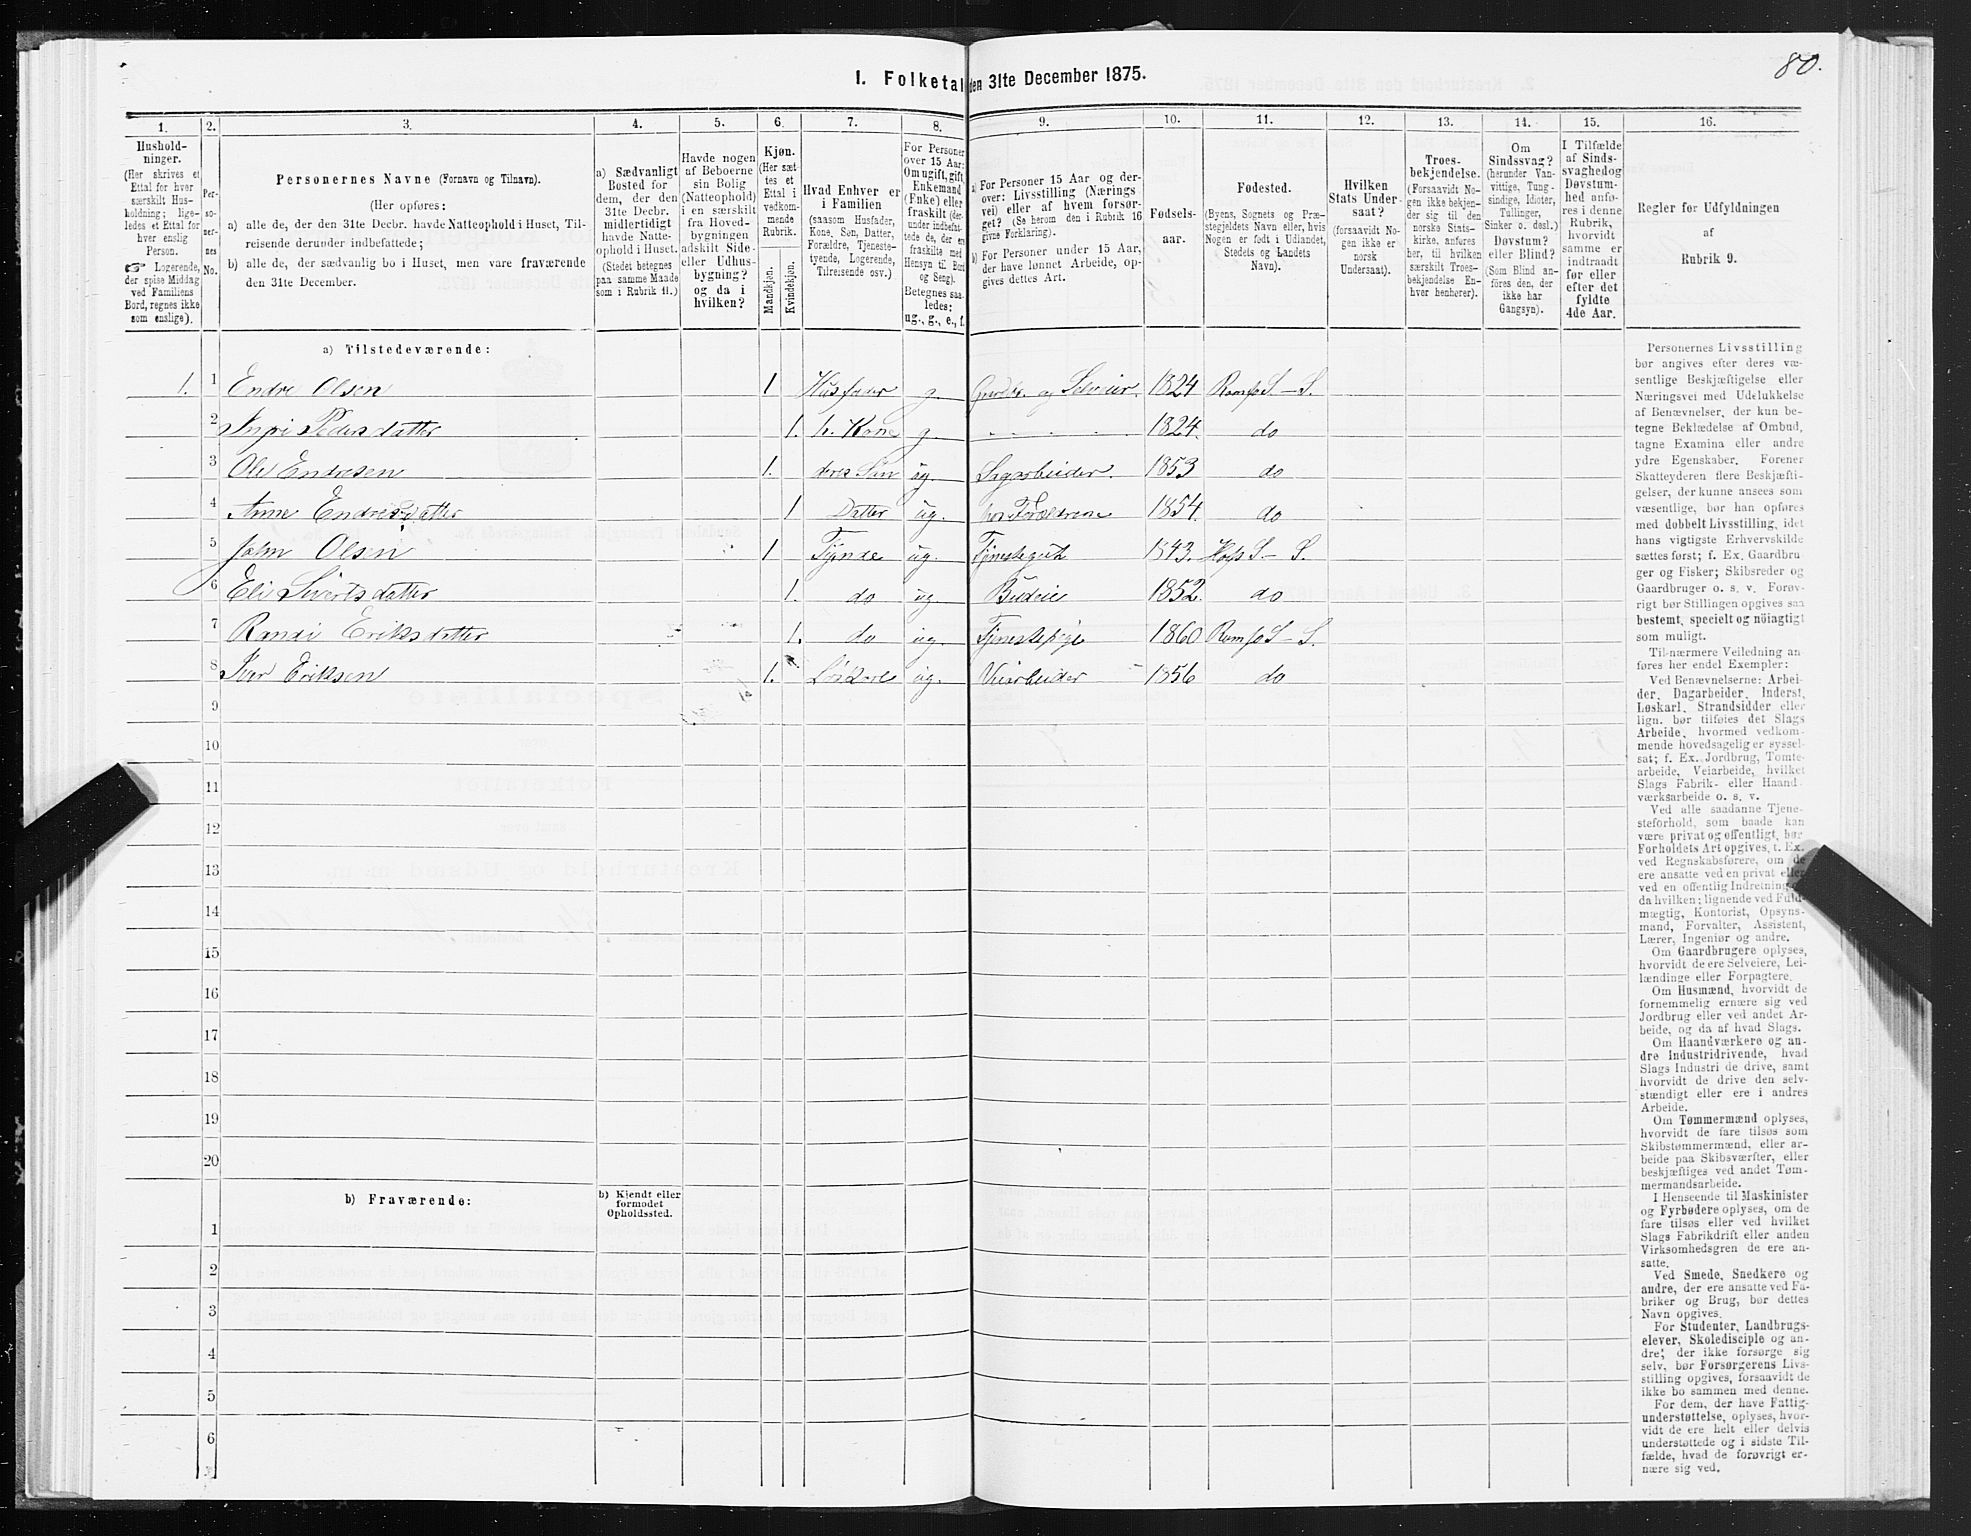 80.
1. Folketal den 31te December 1875.
1.
2.
3.
4.
5.
6.
7.
8.
9.
10.
11.
12.
13.
14.
15.
16.
Hushold-
ninger.
(Her skrives et
Ettal for hver
særskilt Hus-
holdning; lige-
ledes et Ettal for
hver enslig
Person.
☞ Logerende,
der spise Middag
ved Familiens
Bord, regnes ikke
som enslige).
Per-
so-
ner-
nes
No.
Personernes Navne (Fornavn og Tilnavn).
(Her opføres:
a) alle de, der den 31te Decbr. havde Natteophold i Huset, Til-
reisende derunder indbefattede;
b) alle de, der sædvanlig bo i Huset, men vare fraværende
den 31te December.
a) Sædvanligt
Bosted for
dem, der den
31te Decbr.
midlertidigt
havde Natte-
ophold i Huset.
(Stedet betegnes
paa samme Maade
som i Rubrik 11.)
Havde nogen
af Beboerne
sin Bolig
(Natteophold)
i en særskilt
fra Hoved-
bygningen
adskilt Side-
eller Udhus-
bygning?
og da i
hvilken?
Kjøn.
(Her sæt-
tes et
Ettal i
vedkom-
mende
Rubrik.
Mandkjøn.
Kvindekjøn.
Hvad Enhver er
i Familien
(saasom Husfader,
Kone, Søn, Datter,
Forældre, Tjeneste-
tyende, Logerende,
Tilreisende osv.)
For Personer
over 15 Aar:
Om ugift, gift,
Enkemand
(Enke) eller
fraskilt (der-
under indbefat-
tede de, der ere
fraskilte med
Hensyn til Bord
og Seng).
Betegnes saa-
ledes:
ug., g., e., f.
a) For Personer 15 Aar og der-
over: Livsstilling (Nærings-
vei) eller af hvem forsør-
get? (Se herom den i Rubrik 16
givne Forklaring).
b) For Personer under 15 Aar,
der have lønnet Arbeide, op-
gives dettes Art.
Fødsels-
aar.
Fødested.
(Byens, Sognets og Præ-
stegjeldets Navn eller, hvis
Nogen er født i Udlandet,
Stedets og Landets
Navn).
Hvilken
Stats Under-
saat?
(forsaavidt No-
gen ikke er
norsk
Undersaat).
Troes-
bekjendelse.
(Forsaavidt No-
gen ikke bekjen-
der sig til den
norske Stats-
kirke, anføres
her, til hvilken
særskilt Troes-
bekjendelse En-
hver henhører).
Om
Sindssvag?
(herunder Van-
vittige, Tung-
sindige, Idioter,
Tullinger,
Sinker o. desl.)
Døvstum?
eller Blind?
(Som Blind an-
føres den, der
ikke har
Gangsyn).
I Tilfælde
af Sinds-
svaghed og
Døvstum-
hed anfø-
res i denne
Rubrik,
hvorvidt
samme er
indtraadt
før eller
efter det
fyldte
4de Aar.
Regler for Udfyldningen
af
Rubrik 9.
a) Tilstedeværende:
1. 1 Endre Olsen 1 Husfader g. Gardbr. og Selveier. 1824 Romfo S – S.
2 Ingri Pedersdatter 1. h. Kone g. 1824. do
3 Ole Endresen 1. deres Søn ug. Sagarbeider. 1853 do
4 Anne Endresdatter 1 Datter ug. hos Forældrene 1854. do
5 John Olsen 1 Tyende ug. Tjenestegut 1843. Hofs S – S.
6 Eli Sivertsdatter 1. do ug. Budeie 1852. do
7 Randi Eriksdatter 1. do ug. Tjenestepige 1860 Romfo S – S.
8 Iver Eriksen 1. Løskarl ug. Veiarbeider 1856 do
9
10
11
12
13
14
15
16
17
18
19
20
b) Fraværende:
b) Kjendt eller
formodet
Opholdssted.
1
2
3
4
5
6
Personernes Livsstilling
bør angives efter deres væ-
sentlige Beskjæftigelse eller
Næringsvei med Udelukkelse
af Benævnelser, der kun be-
tegne Beklædelse af Ombud,
tagne Examina eller andre
ydre Egenskaber. Forener
Skatteyderen flere Beskjæfti-
gelser, der kunne ansees som
væsentlige, bør han opføres
med dobbelt Livsstilling, idet
hans vigtigste Erhvervskilde
sættes først; f. Ex. Gaardbru-
ger og Fisker; Skibsreder og
Gaardbruger o. s. v. Forøv-
rigt bør Stillingen opgives saa
bestemt, specielt og nöiagtigt
som muligt.
Til nærmere Veiledning an-
føres her endel Exempler:
Ved Benævnelserne: Arbei-
der, Dagarbeider, Inderst,
Løskarl, Strandsidder eller
lign. bør tilføies det Slags
Arbeide, hvormed vedkom-
mende hovedsagelig er syssel-
sat; f. Ex. Jordbrug, Tomte-
arbeide, Veiarbeide, hvilket
Slags Fabrik- eller Haand-
værksarbeide o. s. v.
Ved alle saadanne Tjene-
steforhold, som baade kan
være privat og offentligt, bør
Forholdets Art opgives, t. Ex.
ved Regnskabsførere, om de
ere ansatte ved en privat eller
ved en offentlig Indretning og
da hvilken; lignende ved Fuld-
mægtig, Kontorist, Opsyns-
mand, Forvalter, Assistent,
Lærer, Ingeniør og andre.
Om Gaardbrugere oplyses,
hvorvidt de ere Selveiere, Lei-
lændinge eller Forpagtere.
Om Husmænd, hvorvidt de
fornemmelig ernære sig ved
Jordbrug eller ved andet Ar-
beide, og da af hvad Slags.
Om Haandværkere og an-
dre Industridrivende, hvad
Slags Industri de drive, samt
hvorvidt de drive den selv-
stændigt eller ere i andres
Arbeide.
Om Tømmermænd oplyses,
hvorvidt de fare tilsøs som
Skibstømmermænd, eller ar-
beide paa Skibsværfter, eller
beskjæftiges ved andet Tøm-
mermandsarbeide.
I Henseende til Maskinister
og Fyrbødere oplyses, om de
fare tilsøs eller ved hvilket
Slags Fabrikdrift eller anden
Virksomhedsgren de ere an-
satte.
Ved Smede, Snedkere og
andre, der ere ansatte ved Fa-
briker og Brug, bør dettes
Navn opgives.
For Studenter, Landbrugs-
elever, Skoledisciple og an-
dre, der ikke forsørge sig
selv, bør Forsørgerens Livs-
stilling opgives, forsaavidt de
ikke bo sammen med denne.
For dem, der have Fattig-
understøttelse, oplyses, hvor-
vidt de ere helt eller delvis
understøttede og i sidste Til-
fælde, hvad de forøvrigt er-
nære sig ved.